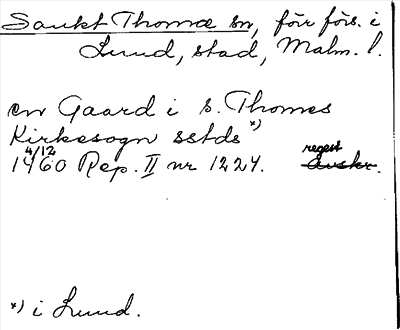 Sankt Thomæ sn, förr förs. i
Lund, stad, Malm. l.
en Gaard i S. Thomes
Kirkesogn sstds *)
4/12 regest
1460 Rep. II nr 1224. Avskr.
*) i Lund.